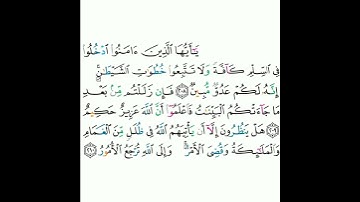 يَٰٓأَيُّهَا ٱلَّذِينَ ءَامَنُوا۟ ٱدْخُلُوا۟
فِي ٱلسِّلْمِ كَآفَّةً وَلَا تَتَّبِعُوا۟ خُطُوَٰتِ ٱلشَّيْطَٰنِ ۚ
إِنَّهُۥ لَكُمْ عَدُوٌّ مُّبِينٌ ٢٠٨ فَإِن زَلَلْتُم مِّنۢ بَعْدِ
مَا جَآءَتْكُمُ ٱلْبَيِّنَٰتُ فَٱعْلَمُوٓا۟ أَنَّ ٱللَّهَ عَزِيزٌ حَكِيمٌ
٢٠٩ هَلْ يَنظُرُونَ إِلَّآ أَن يَأْتِيَهُمُ ٱللَّهُ فِي ظُلَلٍ مِّنَ ٱلْغَمَامِ
وَٱلْمَلَٰٓئِكَةُ وَقُضِيَ ٱلْأَمْرُ ۚ وَإِلَى ٱللَّهِ تُرْجَعُ ٱلْأُمُورُ ٢١٠